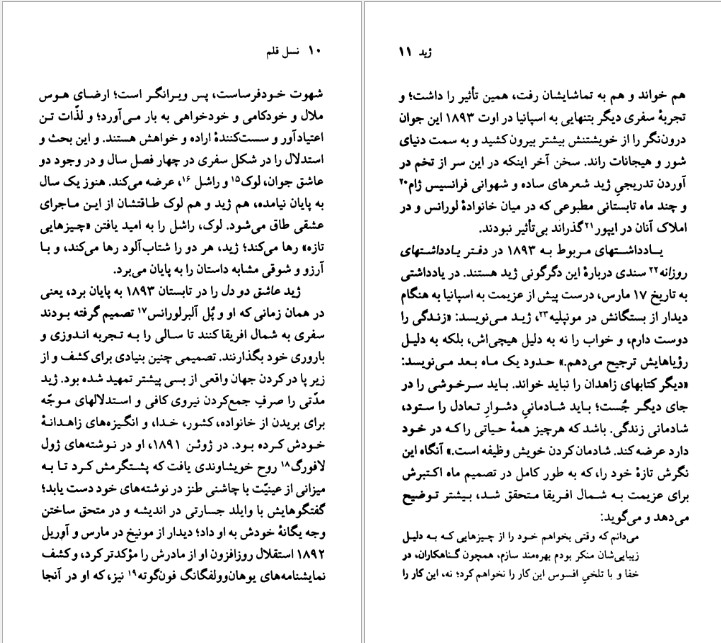 ۱۰ نسل قلم
شهوت خودفرساست، پس ویرانگر است؛ ارضای هوس
ملال و خودکامی و خودخواهی به بار می‌آورد؛ و لذّات تن
اعتیادآور و سست‌کنندهٔ اراده و خواهش هستند. و این بحث و
استدلال را در شکل سفری در چهار فصل سال و در وجود دو
عاشق جوان، لوک۱۵ و راشل ۱۶، عرضه می‌کند. هنوز یک سال
به پایان نیامده، هم ژید و هم لوک طاقتشان از این ماجرای
عشقی طاق می‌شود. لوک، راشل را به امید یافتن «چیزهایی
تازه» رها می‌کند؛ ژید، هر دو را شتاب‌آلود رها می‌کند، و با
آرزو و شوقی مشابه داستان را به پایان می‌برد.
ژید عاشق دو دل را در تابستان ۱۸۹۳ به پایان برد، یعنی
در همان زمانی که او و پُل آلبرلورانس۱۷ تصمیم گرفته بودند
سفری به شمال افریقا کنند تا سالی را به تجربه اندوزی و
باروری خود بگذارند. تصمیمی چنین بنیادی برای کشف و از
زیر پا در کردن جهان واقعی از بسی پیشتر تمهید شده بود. ژید
مدّتی را صرفِ جمع‌کردن نیروی کافی و استدلالهای موجّه
برای بریدن از خانواده، کشور، خدا، و انگیزه‌های زاهدانهٔ
خودش کرده بود. در ژوئن ۱۸۹۱، او در نوشته‌های ژول
لافورگ۱۸ روح خویشاوندی یافت که پشتگرمش کرد تا به
میزانی از عینیّت با چاشنی طنز در نوشته‌های خود دست یابد؛
گفتگوهایش با وایلد جسارتی در اندیشه و در متحق ساختن
وجه یگانهٔ خودش به او داد؛ دیدار از مونیخ در مارس و آوریل
۱۸۹۲ استقلال روزافزون او از مادرش را مؤکدتر کرد، و کشف
نمایشنامه‌های یوهان‌وولفگانگ فون‌گوته۱۹ نیز، که او در آنجا
ژید ۱۱
هم خواند و هم به تماشایشان رفت، همین تأثیر را داشت؛ و
تجربهٔ سفری دیگر بتنهایی به اسپانیا در اوت ۱۸۹۳ این جوان
درون‌نگر را از خویشتنش بیشتر بیرون کشید و به سمت دنیای
شور و هیجانات راند. سخن آخر اینکه در این سر از تخم در
آوردن تدریجیِ ژید شعرهای ساده و شهوانی فرانسیس ژام۲۰
و چند ماه تابستانی مطبوعی که در میان خانوادهٔ لورانس و در
املاک آنان در ایپور۲۱ گذراند بی‌تأثیر نبودند.
یادداشتهای مربوط به ۱۸۹۳ در دفتر یادداشتهای
روزانه۲۲ سندی دربارهٔ این دگرگونی ژید هستند. در یادداشتی
به تاریخ ۱۷ مارس، درست پیش از عزیمت به اسپانیا به هنگام
دیدار از بستگانش در مونپلیه۲۳، ژید می‌نویسد: «زندگی را
دوست دارم، و خواب را نه به دلیل هیچی‌اش، بلکه به دلیل
رؤیاهایش ترجیح می‌دهم.» حدود یک ماه بعد می‌نویسد:
«دیگر کتابهای زاهدان را نباید خواند. باید سرخوشی را در
جای دیگر جُست؛ باید شادمانیِ دشوارِ تعادل را ستود،
شادمانی زندگی. باشد که هرچیز همهٔ حیاتی را که در خود
دارد عرضه کند. شادمان‌کردن خویش وظیفه است.» آنگاه این
نگرش تازهٔ خود را، که به طور کامل در تصمیم ماه اکتبرش
برای عزیمت به شمال افریقا متحقق شد، بیشتر توضیح
می‌دهد و می‌گوید:
می‌دانم که وقتی بخواهم خود را از چیزهایی که به دلیل
زیبایی‌شان منکر بودم بهره‌مند سازم، همچون گناهکاران، در
خفا و با تلخیِ افسوس این کار را نخواهم کرد؛ نه، این کار را